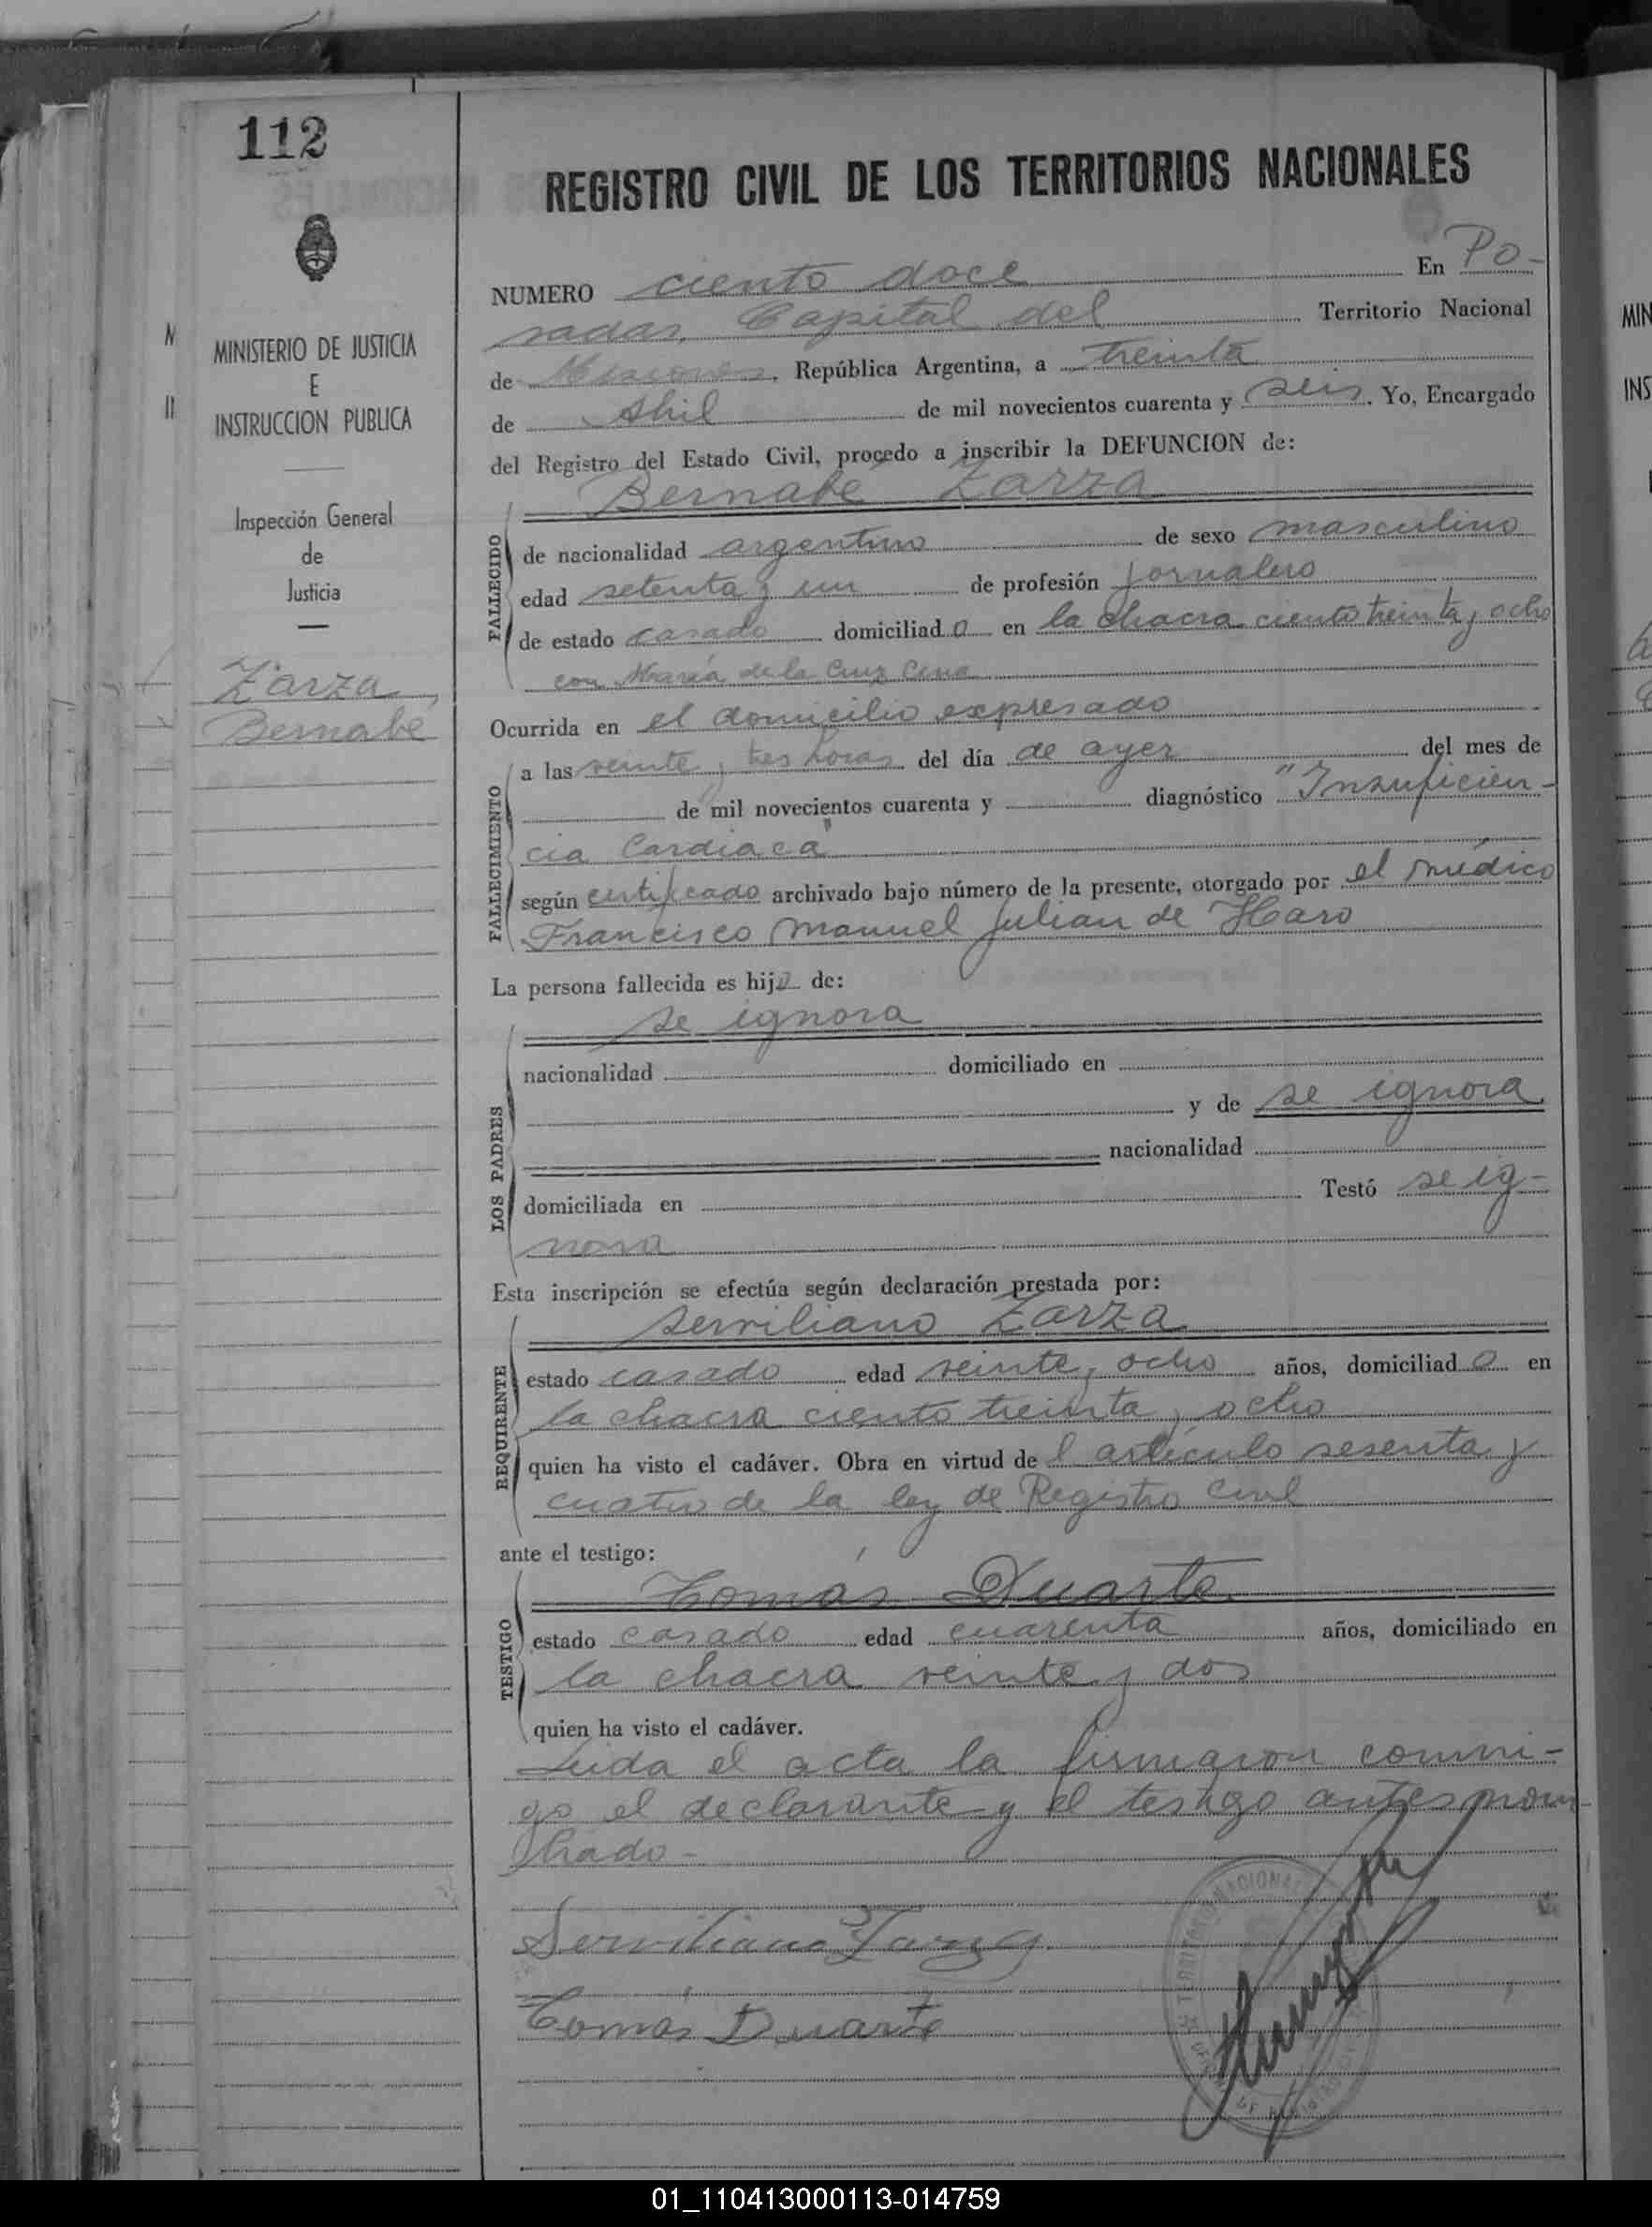 112
MINISTERIO DE JUSTICIA
E
INSTRUCCION PUBLICA
Inspección General
de
Justicia
Zarza,
Bernabé
REGISTRO CIVIL DE LOS TERRITORIOS NACIONALES
NUMERO ciento doce En Po-
sadas, Capital del Territorio Nacional
de Misiones, República Argentina, a treinta
de Abril de mil novecientos cuarenta y seis. Yo, Encargado
del Registro del Estado Civil, procedo a inscribir la DEFUNCION de:
Bernabé Zarza
FALLECIDO
de nacionalidad argentino de sexo masculino
edad setenta y un de profesión jornalero
de estado casado domiciliado en la chacra ciento treinta y ocho
con María de la Cruz
Ocurrida en el domicilio expresado
FALLECIMIENTO
a las veinte y tres horas del día de ayer del mes de
de mil novecientos cuarenta y diagnóstico "Insuficien-
cia Cardiaca"
según certificado archivado bajo número de la presente, otorgado por el médico
Francisco Manuel Julian de Haro
La persona fallecida es hijo de:
LOS PADRES
se ignora
nacionalidad domiciliado en
y de se ignora
nacionalidad
domiciliada en Testó se ig-
nora
Esta inscripción se efectúa según declaración prestada por:
REQUIRENTE
Serviliano Zarza
estado casado edad veinte y ocho años, domiciliado en
la chacra ciento treinta y ocho
quien ha visto el cadáver. Obra en virtud del artículo sesenta y
cuatro de la ley de Registro Civil
ante el testigo:
TESTIGO
Tomás Duarte
estado casado edad cuarenta años, domiciliado en
la chacra veinte y dos
quien ha visto el cadáver.
Leida el acta la firmaron conmi-
go el declarante y el testigo antes nom-
brado-
Serviliano Zarza
Tomás Duarte
01_110413000113-014759